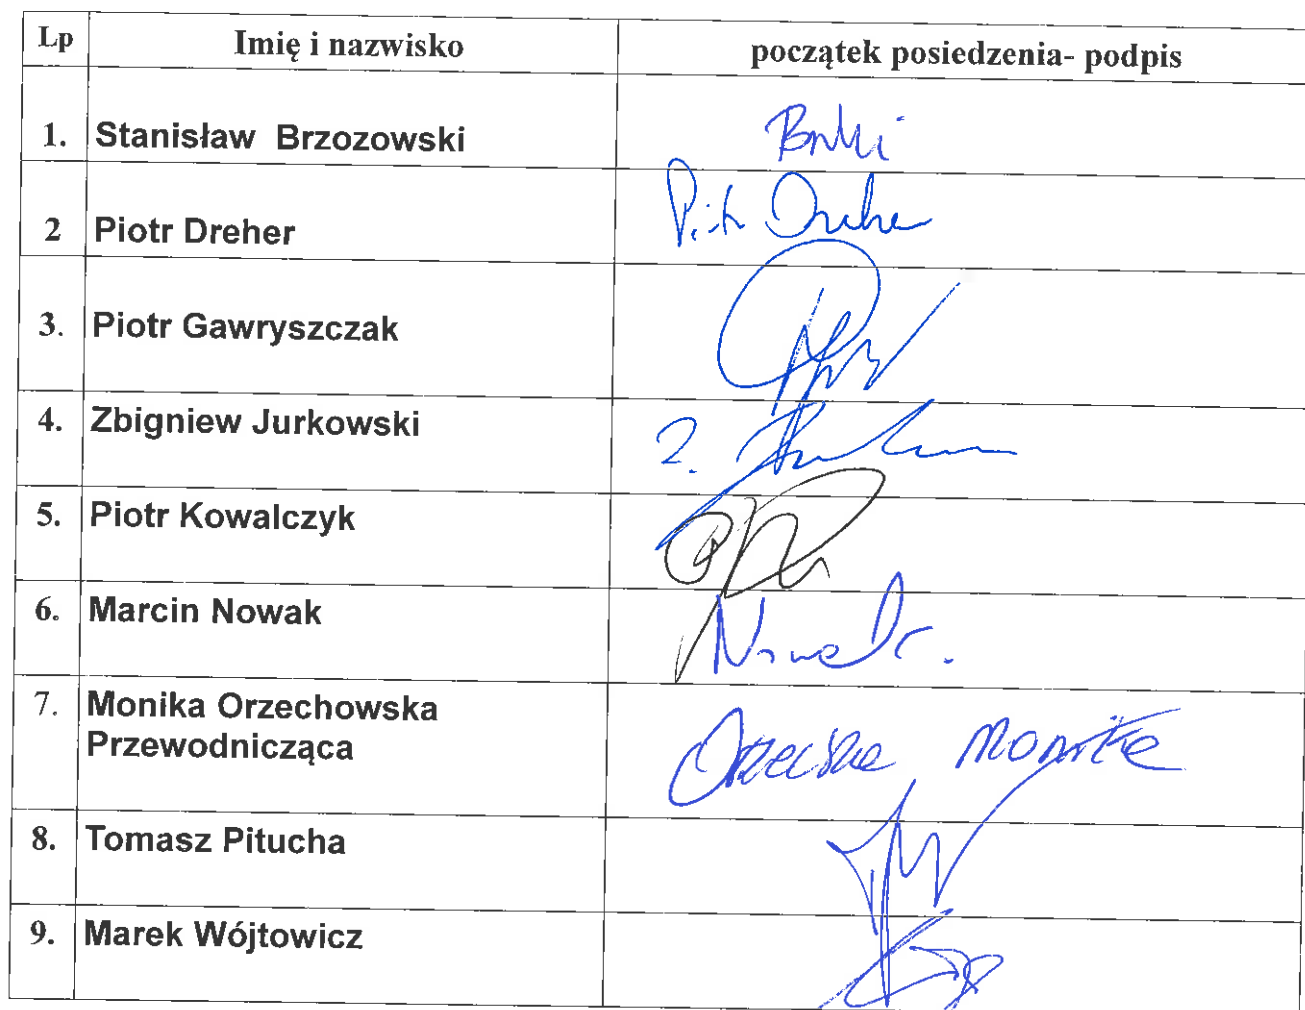 Lp Imię i nazwisko początek posiedzenia- podpis
1. Stanisław Brzozowski
2 Piotr Dreher Piotr Dreher
3. Piotr Gawryszczak
4. Zbigniew Jurkowski
5. Piotr Kowalczyk
6. Marcin Nowak Nowak
7. Monika Orzechowska
Przewodnicząca Monika
8. Tomasz Pitucha
9. Marek Wójtowicz